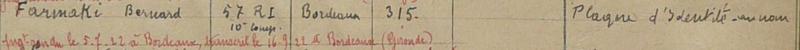 Farmaki Bernard 57 RI Bordeaux 315. Plaque d'Identité au nom
10e Comp.
Jugt rendu le 5.7.22 à Bordeaux, transcrit le 16.9.22 à Bordeaux (Gironde)